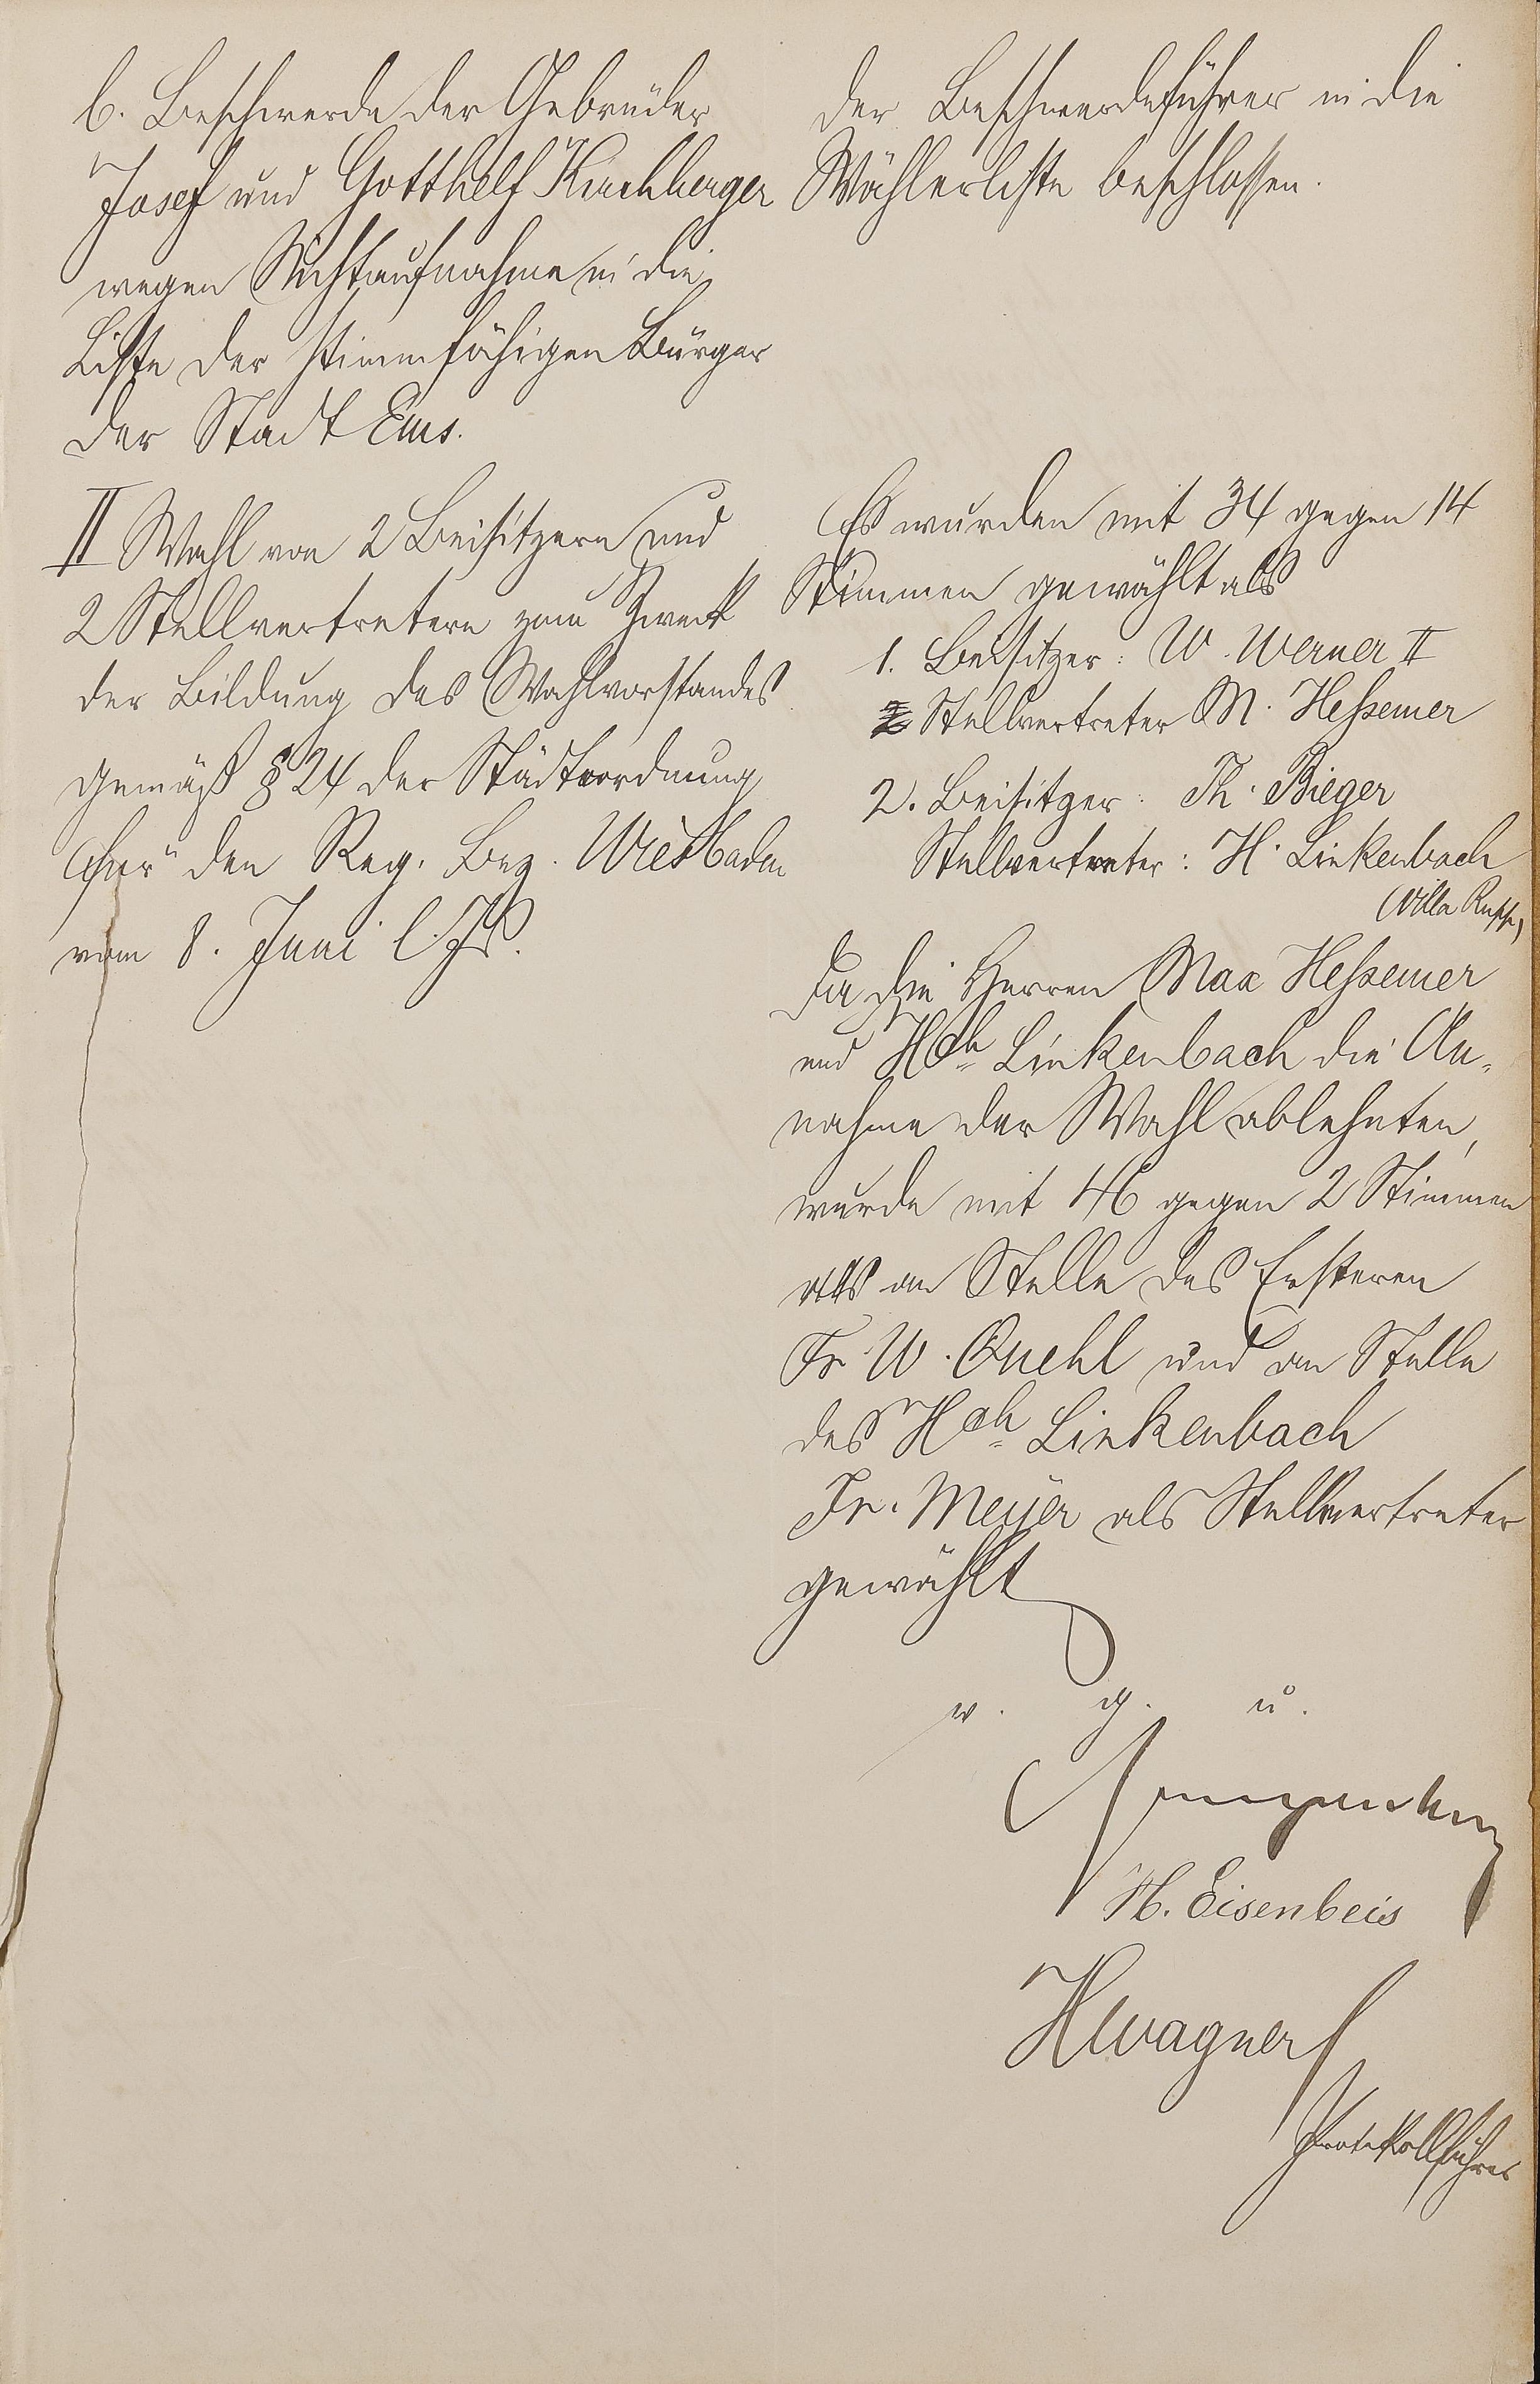 b. Beschwerde der Gebrüder
Josef und Gotthelf Kirchberger
wegen Nichtaufnahme in die
Liste der stimmfähigen Bürger
der Stadt Ems.
der Beschwerdeführer in die
Wählerliste beschlossen.
II Wahl von 2 Beisitzern und
2 Stellvertretern zum Zweck
der Bildung des Wahlvorstandes
gemäß § 24 der Städteordnung
für den Reg. Bez. Wiesbaden
vom 8. Juni l. Js.
Es wurden mit 34 gegen 14
Stimmen gewählt als
1. Beisitzer: W. Werner II
Stellvertreter M. Heßemer
2. Beisitzer: Th. Bieger
Stellvertreter: H. Linkenbach
(Villa
Da die Herren Max Heßemer
und Hch Linkenbach die An-
nahme der Wahl ablehnten,
wurde mit 46 gegen 2 Stimmen
an Stelle des Ersteren
Fr. W. Quehl und an Stelle
des Hch Linkenbach
Fr. Meyer als Stellvertreter
gewählt
v. g. u.
H. Eisenbeis
HWagner
Protokollführer